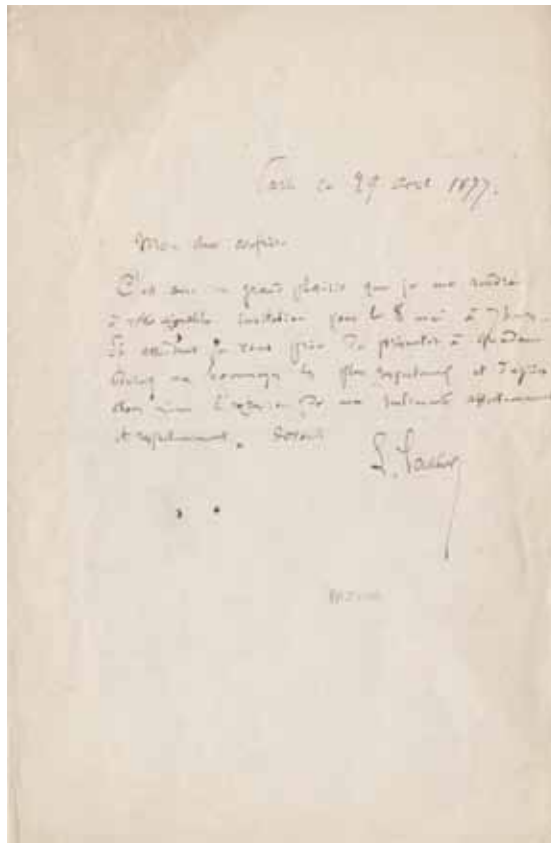 Paris ce 29 avril 1897.
Mon cher confrère
C'est avec un grand plaisir que je me rendrai
à votre aimable invitation pour le 8 mai à 7h
En attendant je vous prie de présenter à Madame
mes hommages les plus respectueux et d'agréer
cher l'expression de mes sentiments
et respectueusement dévoués
L.